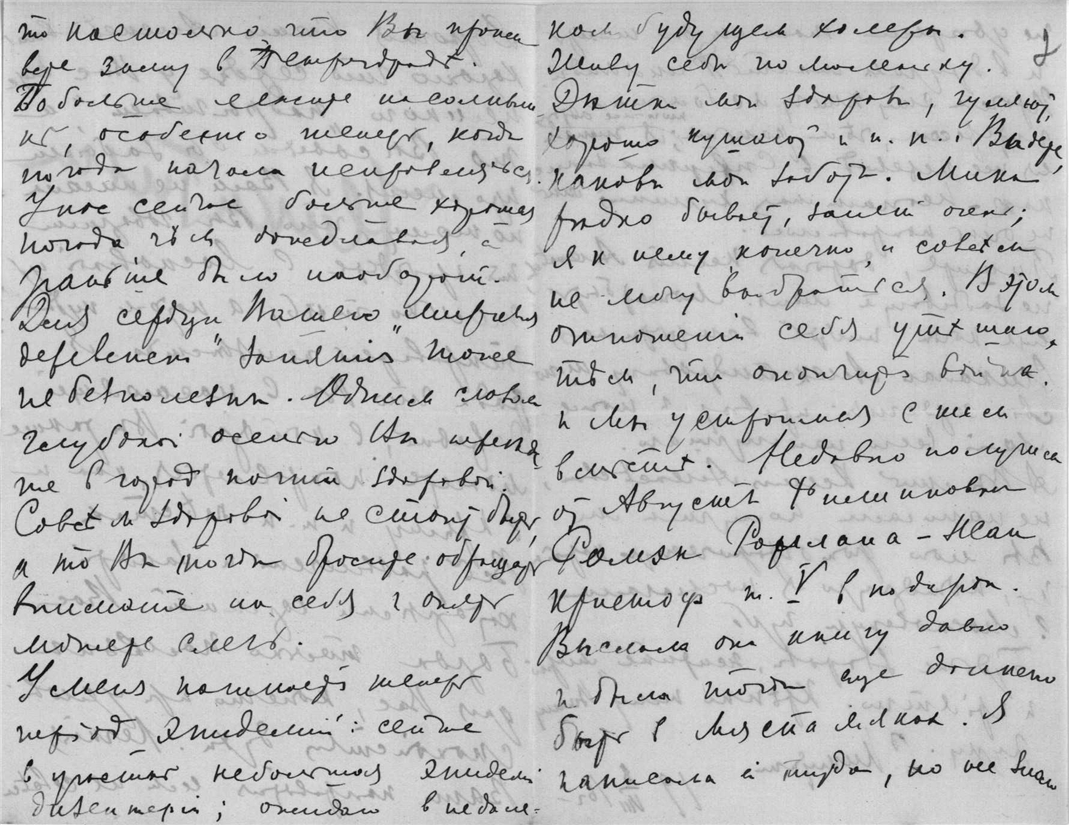 то настолько что Вы прожи
вете зиму в Петрограде.
Побольше лежите на солныш
кѣ, особенно теперь, когда
погода начала исправляться.
У нас сейчас больше хорошая
погода чѣм дождливая, а
раньше было наоборот.
Для сердца Вашего „мирныя
деревенскія" занятія тоже
не безполезны. Одним словом
глубокой осенью Вы переѣд
те в город почти здоровой.
Совсѣм здоровой не стоит быть,
а то Вы тогда бросите обращать
вниманіе на себя и опять
можете слечь.
У меня наступает теперь
період эпидемій: сейчас
в участкѣ небольшая эпидемія
дизентеріи; ожидаю в недале-
ком будущем холеры.
Живу себѣ помаленьку.
Дѣтки мои здоровы, гуляют,
хорошо кушают и т. п. Видите,
каковы мои заботы. Миша
рѣдко бывает, занят очень;
я к нему, конечно, и совсѣм
не могу выбраться. В этом
отношеніи себя утѣшаю
тѣм, что окончится война
и мы устроимся с тѣм
вмѣстѣ. Недавно получила
от Августы Филипповны
Ромэн Роллана – Жан
Кристоф т. V в подарок.
Выслала она книгу давно
и была тогда еще должно
быть в Мяста Мяках. Я
написала ей туда, но не знаю